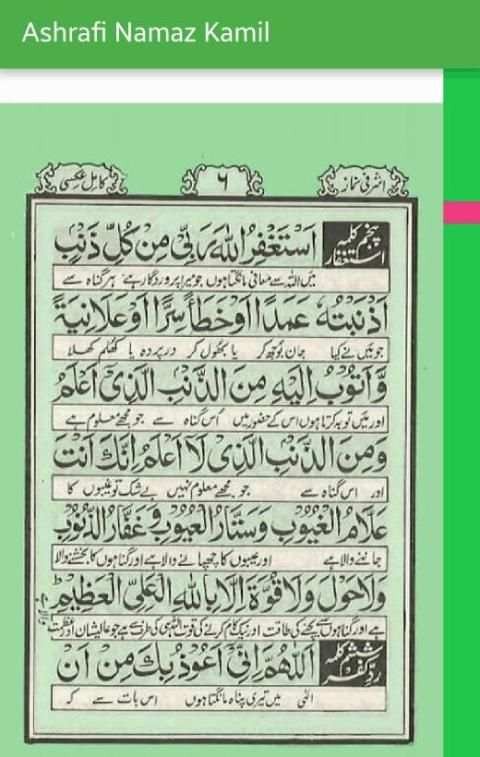 Ashrafi Namaz Kamil
اشرفی نماز ۶ کامل عکسی
پنجم کلمہ استغفار اَسْتَغْفِرُ اللهَ رَبِّیْ مِنْ كُلِّ ذَنْۢبٍ
میں اللہ سے معافی مانگتا ہوں جو میرا پروردگار ہے ہر گناہ سے
اَذْنَبْتُهٗ عَمَدًا اَوْ خَطَأً سِرًّا اَوْ عَلَانِیَةً
جو میں نے کیا جان بوجھ کر یا بھول کر درپردہ یا کھلم کھلا
وَّاَتُوْبُ اِلَیْهِ مِنَ الذَّنْۢبِ الَّذِیْ اَعْلَمُ
اور میں توبہ کرتا ہوں اس کے حضور میں اس گناہ سے جو مجھے معلوم ہے
وَمِنَ الذَّنْۢبِ الَّذِیْ لَا اَعْلَمُ اِنَّكَ اَنْتَ
اور اس گناہ سے جو مجھے معلوم نہیں بے شک تو غیبوں کا
عَلَّامُ الْغُیُوْبِ وَسَتَّارُ الْعُیُوْبِ وَغَفَّارُ الذُّنُوْبِ
جاننے والا ہے اور عیبوں کا چھپانے والا ہے اور گناہوں کا بخشنے والا
وَلَا حَوْلَ وَلَا قُوَّةَ اِلَّا بِاللهِ الْعَلِیِّ الْعَظِیْمِ ط
ہے اور گناہوں سے بچنے کی طاقت اور نیک کام کرنے کی قوت اللہ ہی کی طرف سے ہے جو عالیشان اور عظمت
ششم کلمہ رد کفر اَللّٰهُمَّ اِنِّیْ اَعُوْذُ بِكَ مِنْ اَنْ
الٰہی میں تیری پناہ مانگتا ہوں اس بات سے کہ